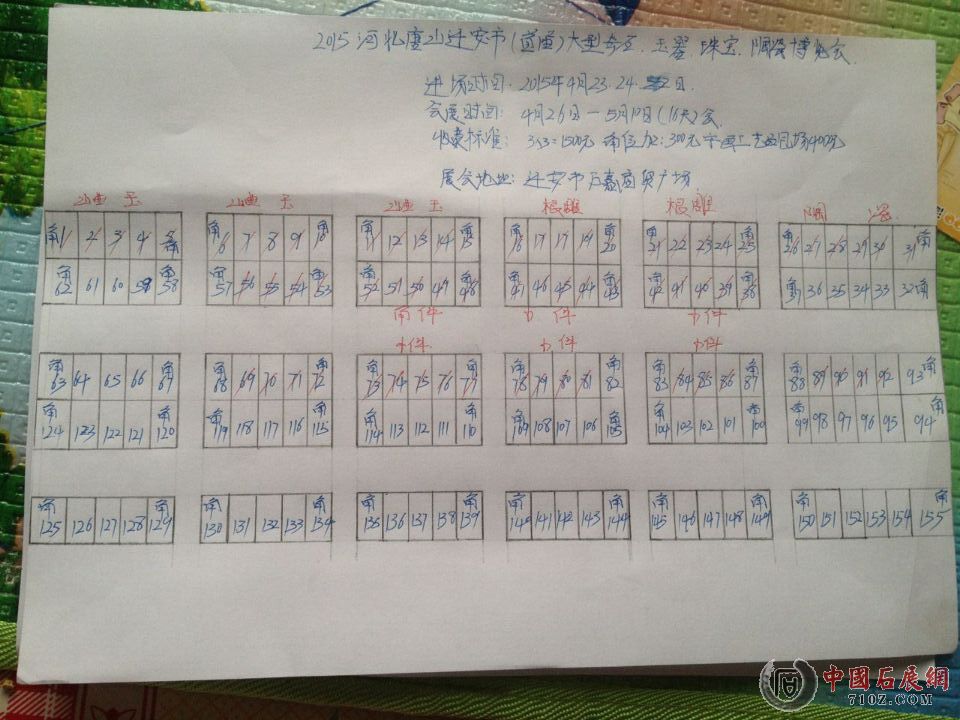 2015河北唐山迁安市(首届)大型奇石、玉器、珠宝、陶瓷博览会
进场时间:2015年4月23.24 日.
会展时间:4月26日—5月10日(16天)会.
收费标准:3×3=1500元 角位加:300元 字画工艺品
展会地址:迁安市 商贸广场
玉 玉 玉 根雕 根雕 陶 瓷
角1 2 3 4 角6 7 8 9 角10 角11 12 13 14 角15 角16 17 17 19 角20 角21 22 23 24 角25 角26 27 28 29 30 31角
角62 61 60 59 角58 角57 56 55 54 角53 角52 51 50 49 角48 角47 46 45 44 角43 角42 41 40 39 角38 角37 36 35 34 33 32角
件 件 件
件 件 件
角63 64 65 66 角67 角68 69 70 71 角72 角73 74 75 76 角77 角78 79 80 81 角82 角83 84 85 86 角87 角88 89 90 91 92 93角
角124 123 122 121 角120 角119 118 117 116 角115 角114 113 112 111 角110 角109 108 107 106 角105 角104 103 102 101 角100 角99 98 97 96 95 94角
角125 126 127 128 角129 角130 131 132 133 角134 角135 136 137 138 角139 角140 141 142 143 角144 角145 146 147 148 角149 角150 151 152 153 154 角155
中國石展網
710Z.COM